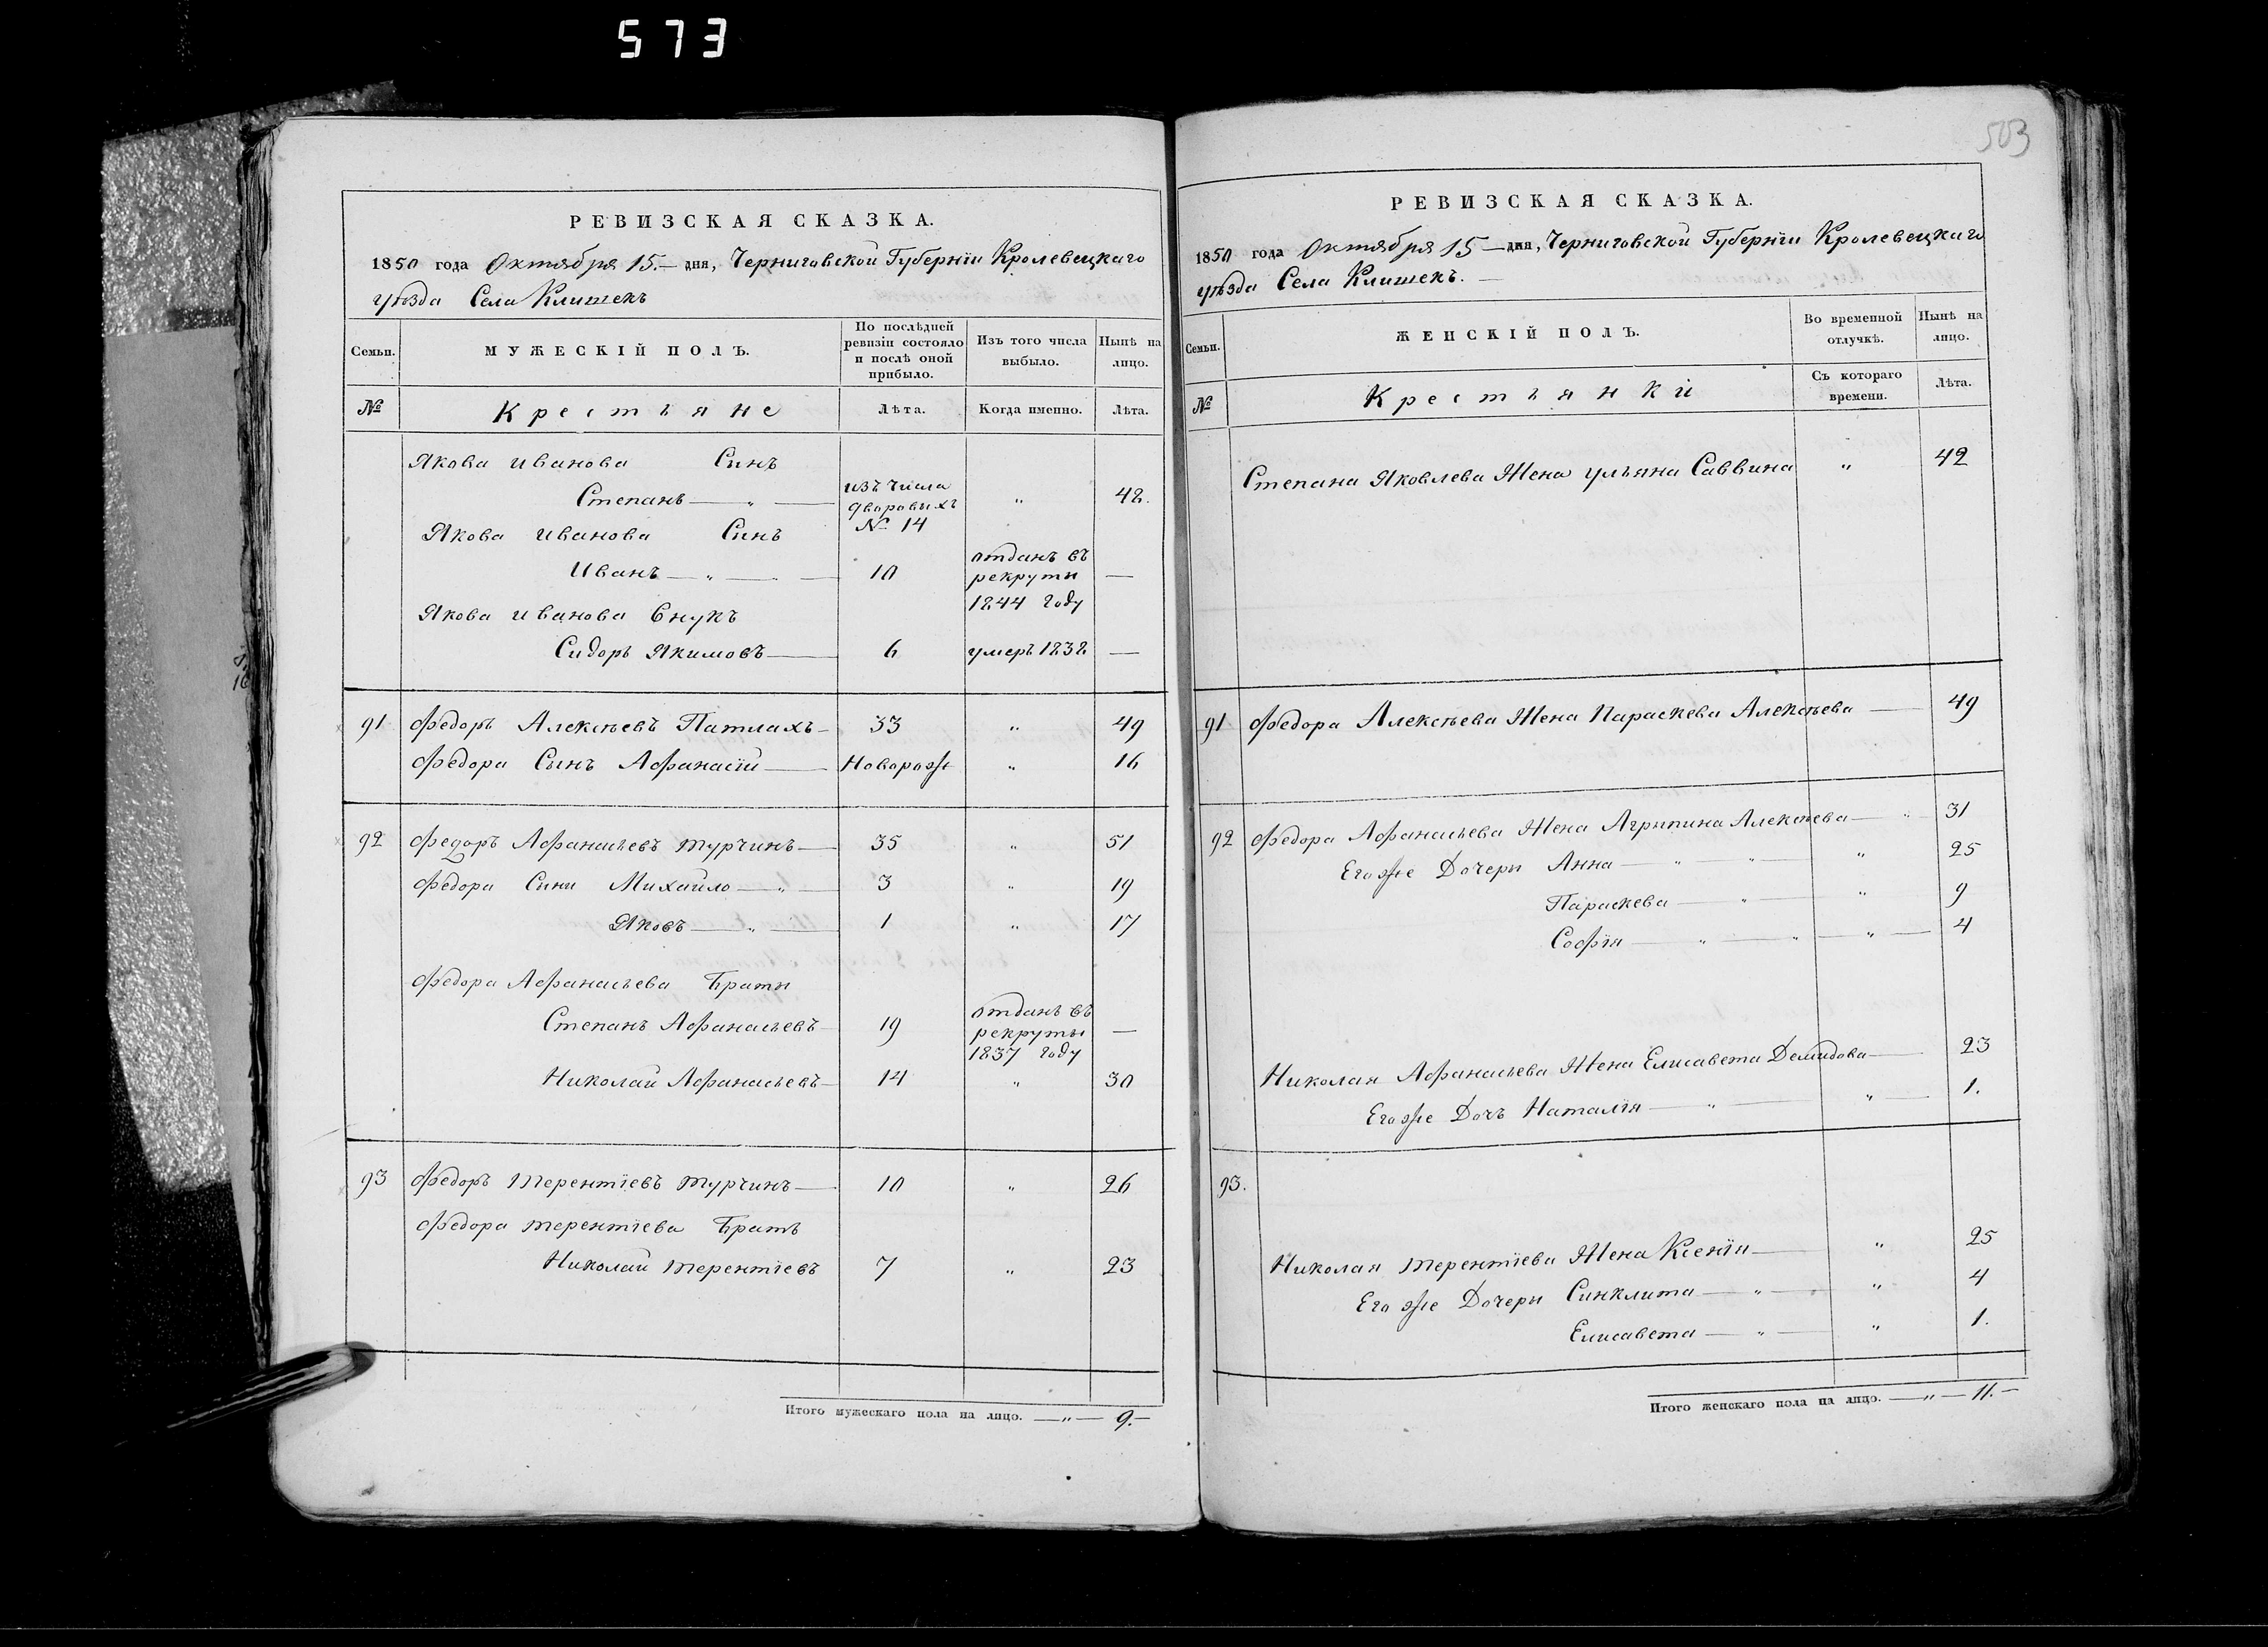 573
РЕВИЗСКАЯ СКАЗКА.
1850 года Октября 15.— дня, Черниговской Губернїи Кролевецкаго
уѣзда Села Клишекъ
Семьи.
МУЖЕСКІЙ ПОЛЪ.
По послѣдней ревизіи состояло и послѣ оной прибыло.
Изъ того числа выбыло.
Нынѣ на лицо.
№
Крестьяне
Лѣта.
Когда именно.
Лѣта.
Якова Иванова Синъ
Степанъ — „ — изъ числа дворовыхъ № 14 „ 42.
Якова Иванова Синъ
Иванъ — „ — 10 отданъ въ рекруты 1844 году —
Якова Иванова Внукъ
Сидоръ Якимовъ — 6 умеръ 1838 —
91 Федоръ Алексѣевъ Патлахъ — 33 „ 49
Федора Сынъ Афанасій — Наворож „ 16
92 Федоръ Афанасьевъ Турчинъ — 35 „ 51
Федора Сини Михайло — „ — 3 „ 19
Яковъ — „ — 1 „ 17
Федора Афанасьева Браты
Степанъ Афанасьевъ — 19 отданъ въ рекруты 1837 году —
Николай Афанасьевъ — 14 „ 30
93 Федоръ Терентїевъ Турчинъ — 10 „ 26
Федора Терентїева Братъ
Николай Терентїевъ 7 „ 23
Итого мужескаго пола на лицо. — „ — 9.—
503
РЕВИЗСКАЯ СКАЗКА.
1850 года Октября 15 — дня, Черниговской Губернїи Кролевецкаго
уѣзда Села Клишекъ. —
Семьи.
ЖЕНСКІЙ ПОЛЪ.
Во временной отлучкѣ.
Нынѣ на лицо.
№
Крестьянки
Съ котораго времени.
Лѣта.
Степана Яковлева Жена Ульяна Саввина „ 42
91 Федора Алексѣева Жена Параскева Алексѣева — 49
92 Федора Афанасьева Жена Агрыпина Алексѣева — „ 31
Его же Дочеры Анна — „ — „ — „ 25
Параскева — „ — „ 9
Софїя — „ — „ — „ — 4
Николая Афанасьева Жена Елисавета Демидова — 23
Его же Дочъ Наталїя — „ — „ — 1.
93.
Николая Терентїева Жена Ксенїя — „ 25
Его же Дочеры Синклита — „ — „ 4
Елисавета — „ — „ 1.
Итого женскаго пола на лицо. — „ — 11.—